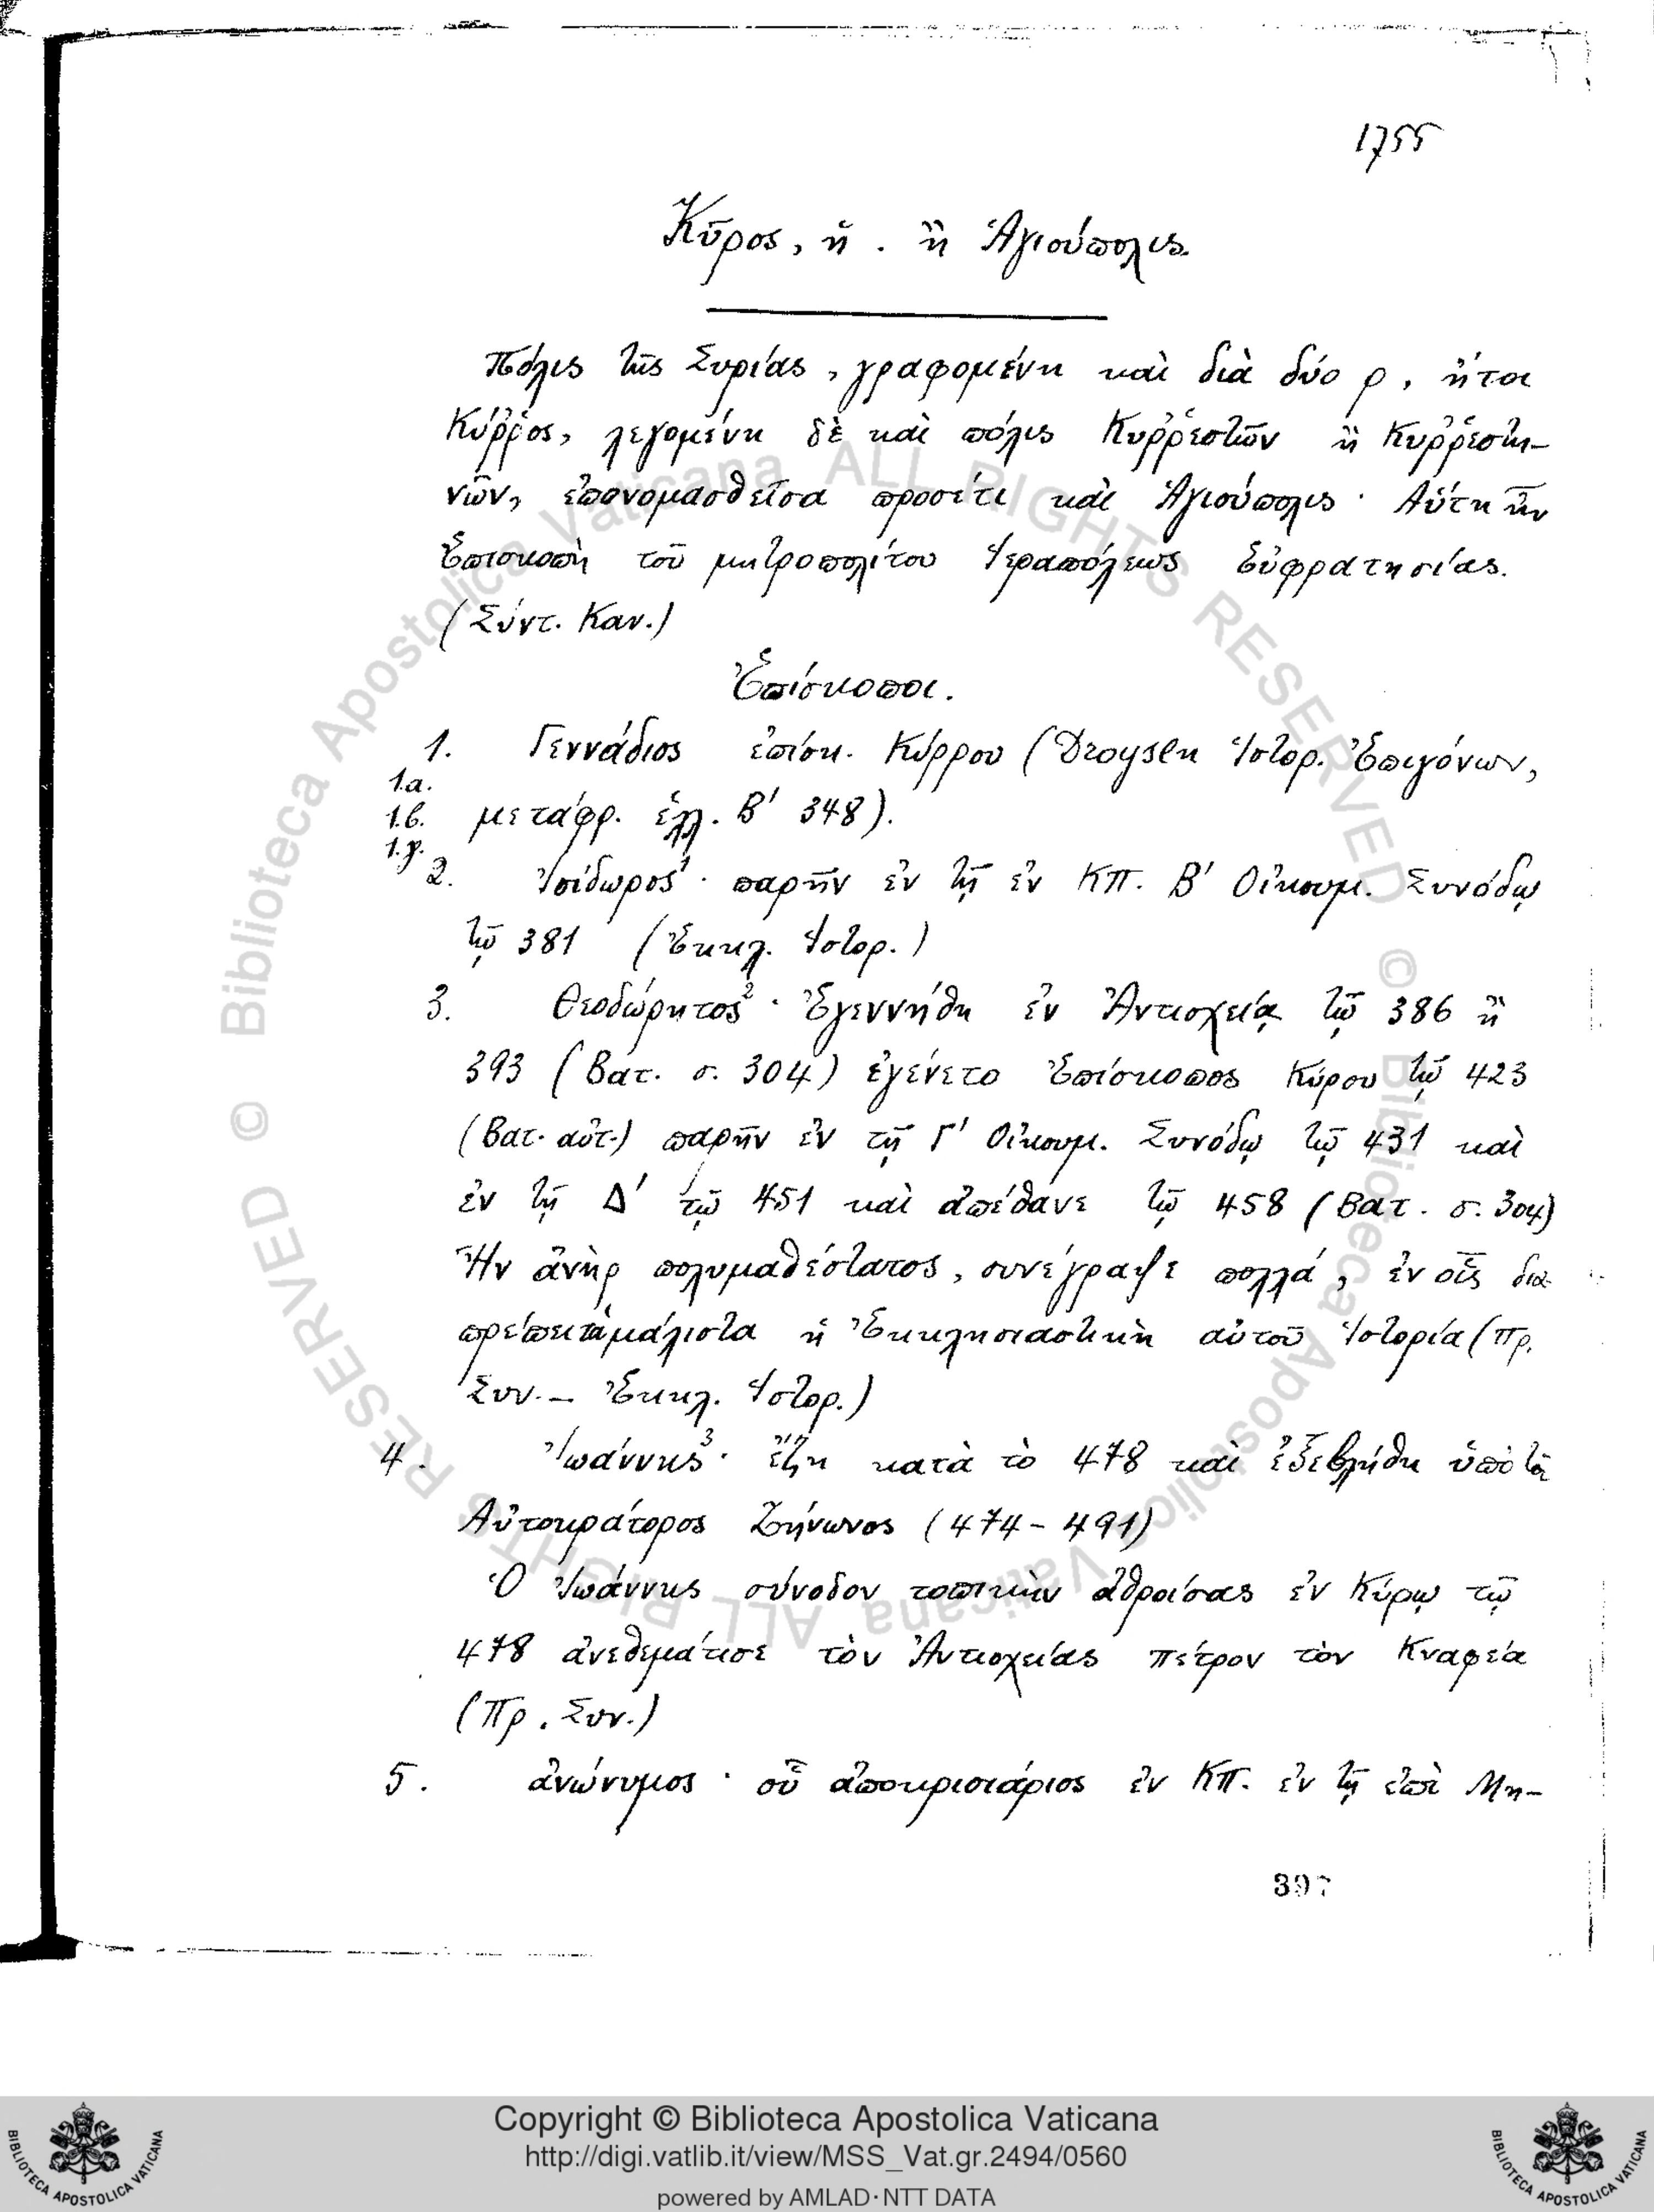 1755
Κῦρος, ἡ. ἢ Ἁγιούπολις.
Πόλις τῆς Συρίας, γραφομένη καὶ διὰ δύο ρ, ἤτοι
Κύῤῥος, λεγομένη δὲ καὶ πόλις Κυῤῥεστῶν ἢ Κυῤῥεστη-
νῶν, ἐπονομασθεῖσα προσέτι καὶ Ἁγιούπολις· Αὕτη ἦν
Ἐπισκοπὴ τοῦ μητροπολίτου Ἱεραπόλεως Εὐφρατησίας.
(Σύντ. Καν.)
Ἐπίσκοποι.
1. Γεννάδιος ἐπίσκ. Κύρρου (Droysen Ἱστορ. Ἐπιγόνων,
1.α.
1.β. μετάφρ. ἑλλ. Β' 348).
1.γ.
2. Ἰσίδωρος¹· παρῆν ἐν τῇ ἐν ΚΠ. Β' Οἰκουμ. Συνόδῳ
τῷ 381 (Ἐκκλ. Ἱστορ.)
3. Θεοδώρητος²· Ἐγεννήθη ἐν Ἀντιοχείᾳ τῷ 386 ἢ
393 (Βατ. σ. 304) ἐγένετο Ἐπίσκοπος Κύρου τῷ 423
(Βατ. αὐτ.) παρῆν ἐν τῇ Γ' Οἰκουμ. Συνόδῳ τῷ 431 καὶ
ἐν τῇ Δ' τῷ 451 καὶ ἀπέθανε τῷ 458 (Βατ. σ. 304)
Ἦν ἀνὴρ πολυμαθέστατος, συνέγραψε πολλά, ἐν οἷς δια-
πρέπει τὰ μάλιστα ἡ Ἐκκλησιαστικὴ αὐτοῦ Ἱστορία (Πρ.
Συν.– Ἐκκλ. Ἱστορ.)
4. Ἰωάννης³· ἔζη κατὰ τὸ 478 καὶ ἐξεβλήθη ὑπὸ τοῦ
Αὐτοκράτορος Ζήνωνος (474-491)
Ὁ Ἰωάννης σύνοδον τοπικὴν ἀθροίσας ἐν Κύρῳ τῷ
478 ἀνεθεμάτισε τὸν Ἀντιοχείας Πέτρον τὸν Κναφέα
(Πρ. Συν.)
5. ἀνώνυμος· οὗ ἀποκρισιάριος ἐν ΚΠ. ἐν τῇ ἐπὶ Μη-
397
© Biblioteca Apostolica Vaticana ALL RIGHTS RESERVED © Biblioteca Apostolica Vaticana ALL RIGHTS RESERVED
Copyright © Biblioteca Apostolica Vaticana
http://digi.vatlib.it/view/MSS_Vat.gr.2494/0560
powered by AMLAD·NTT DATA
BIBLIOTECA APOSTOLICA VATICANA
BIBLIOTECA APOSTOLICA VATICANA